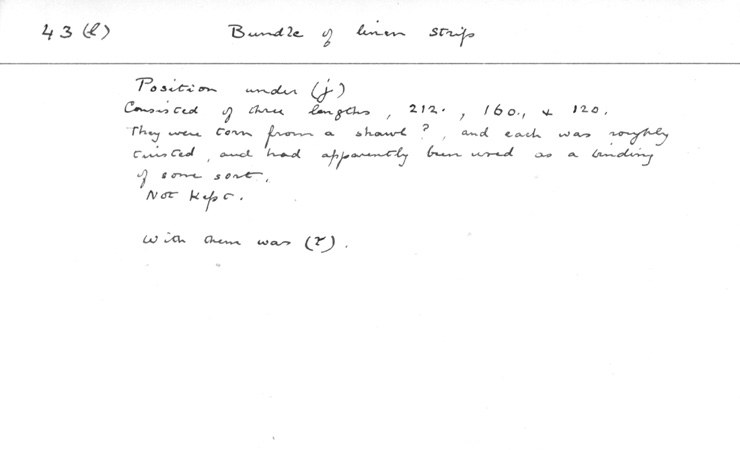 43 (l) Bundle of linen strips
Position under (j)
Consisted of three lengths, 212., 160., & 120.
They were torn from a shawl?, and each was roughly
twisted, and had apparently been used as a binding
of some sort.
Not kept.
With them was (r).